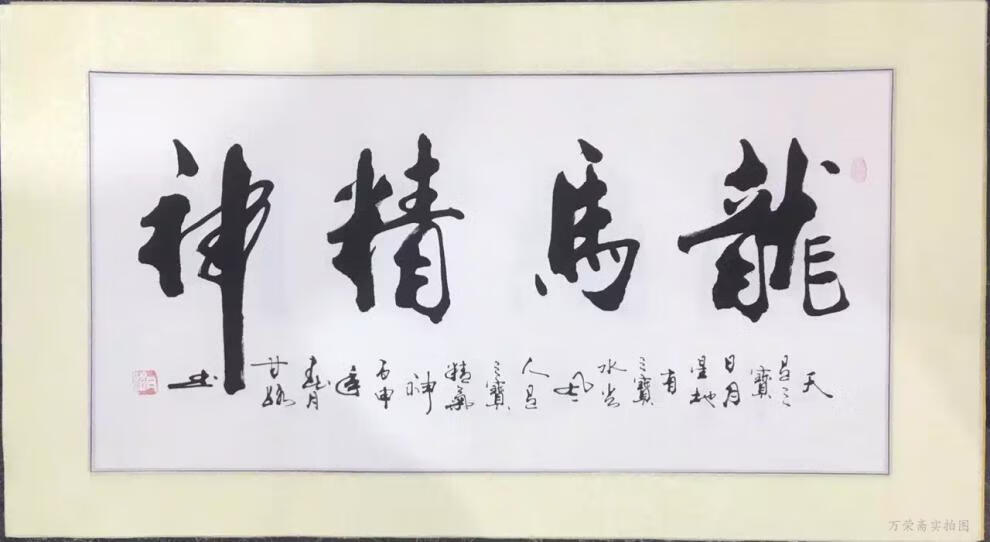 龍馬精神
天
昌三
寶
日月
星地
有
三寶
水火
風
人昌
三寶
精氣
神
丙申
年
春月
书
万荣斋实拍图